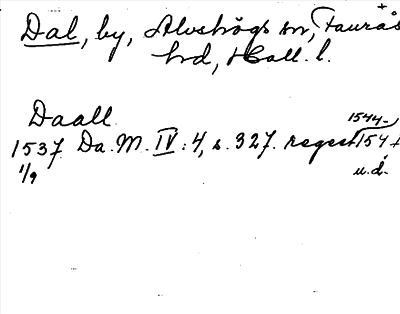 Dal, by, Alvehögs sn, Faurås
hd, Hall. l.
Daall
1544-
1537 Da. M. IV : 4, s. 327. regest 154
1/9
u.d.